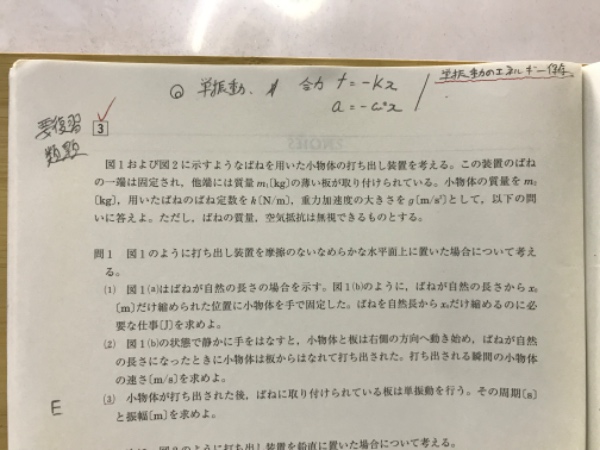 単振動. 合力 f=-kx
a=-ω²x
単振動のエネルギー保存
要復習
類題
3
図1および図2に示すようなばねを用いた小物体の打ち出し装置を考える。この装置のばね
の一端は固定され，他端には質量m₁〔kg〕の薄い板が取り付けられている。小物体の質量をm₂
〔kg〕，用いたばねのばね定数をk〔N/m〕，重力加速度の大きさをg〔m/s²〕として，以下の問
いに答えよ。ただし，ばねの質量，空気抵抗は無視できるものとする。
問1 図1のように打ち出し装置を摩擦のないなめらかな水平面上に置いた場合について考え
る。
(1) 図1(a)はばねが自然の長さの場合を示す。図1(b)のように，ばねが自然の長さからx₀
〔m〕だけ縮められた位置に小物体を手で固定した。ばねを自然長からx₀だけ縮めるのに必
要な仕事〔J〕を求めよ。
(2) 図1(b)の状態で静かに手をはなすと，小物体と板は右側の方向へ動き始め，ばねが自然
の長さになったときに小物体は板からはなれて打ち出された。打ち出される瞬間の小物体
の速さ〔m/s〕を求めよ。
(3) 小物体が打ち出された後，ばねに取り付けられている板は単振動を行う。その周期〔s〕
と振幅〔m〕を求めよ。
E
図2のように打ち出し装置を鉛直に置いた場合について考える。